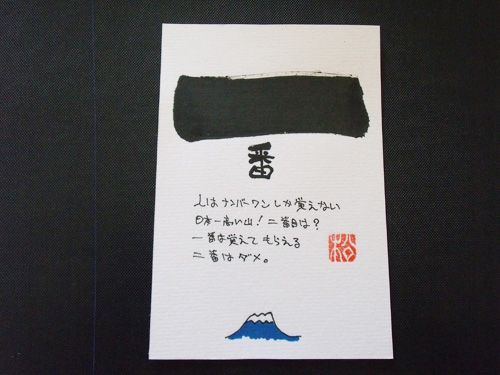 一
番
人はナンバーワンしか覚えない
日本一高い山！二番目は？
一番は覚えてもらえる
二番はダメ。
松